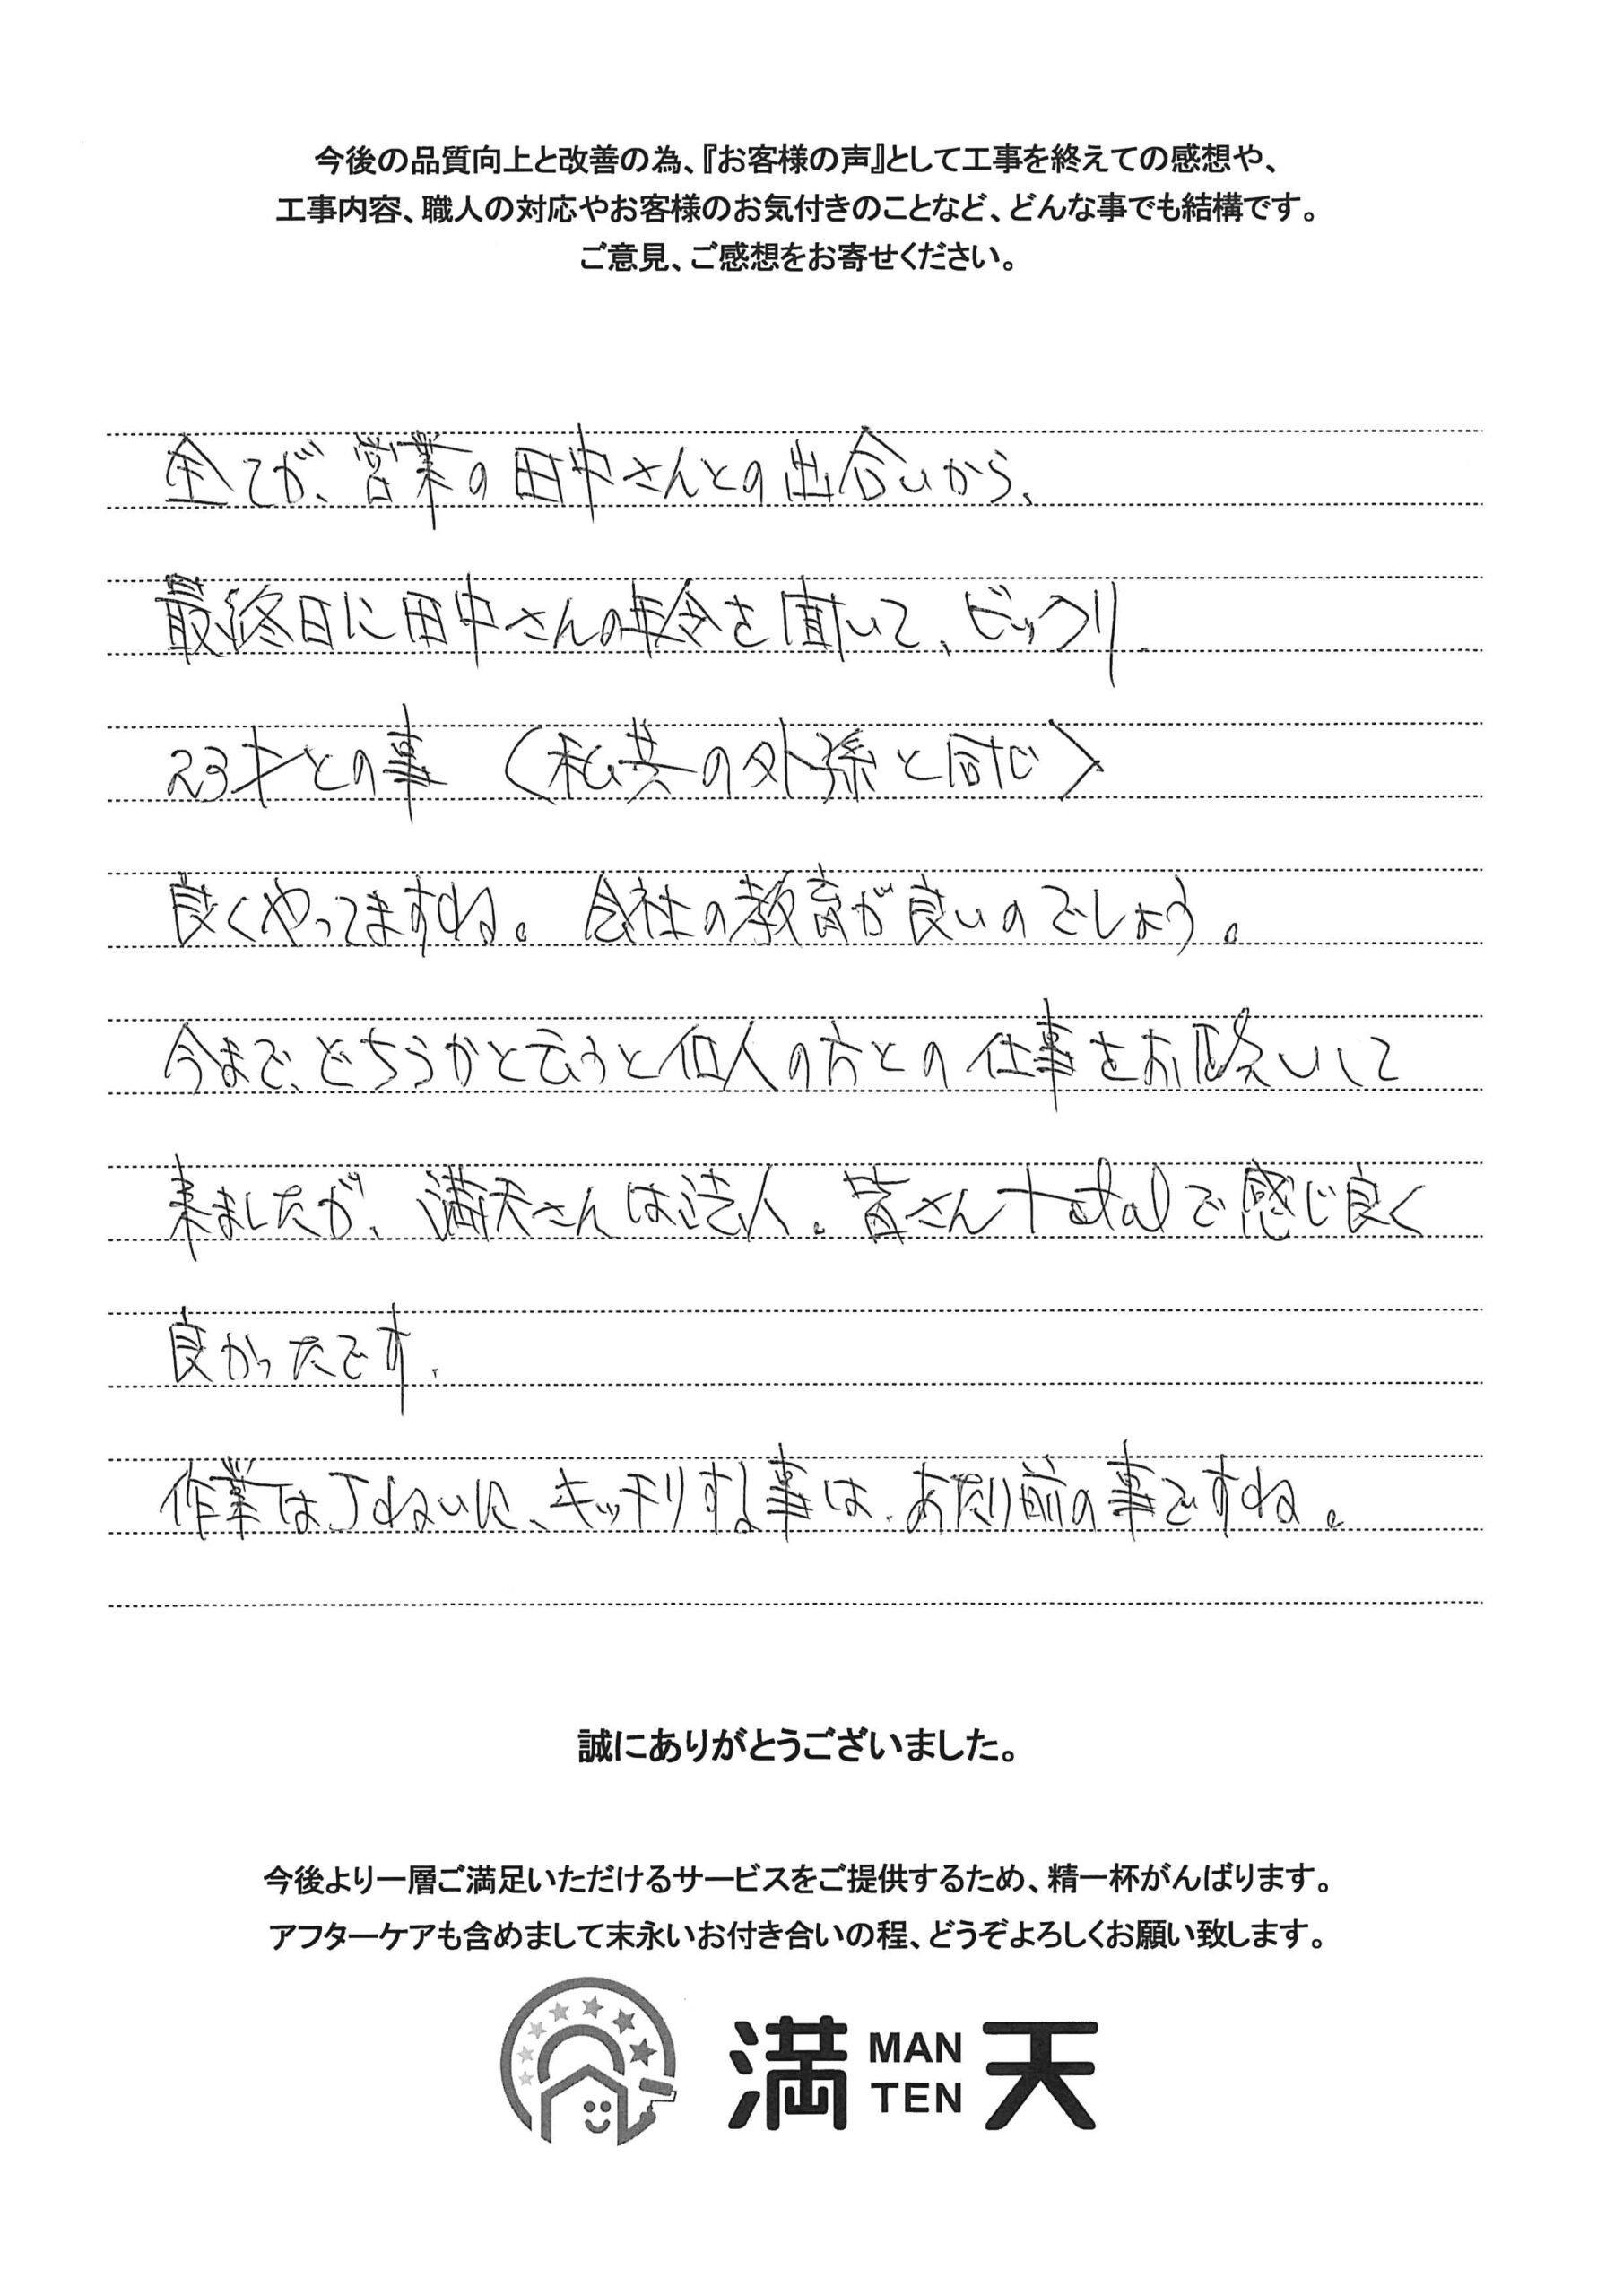 今後の品質向上と改善の為、『お客様の声』として工事を終えての感想や、
工事内容、職人の対応やお客様のお気付きのことなど、どんな事でも結構です。
ご意見、ご感想をお寄せください。
全てが、営業の田中さんとの出合いから、
最終日に田中さんの年令を聞いて、ビックリ.
23才との事 〈私共の外孫と同じ〉
良くやってますね。 会社の教育が良いのでしょう。
今まで、どちらかと云うと個人の方との仕事をお願いして
来ましたが、満天さんは法人。皆さんtotalで感じ良く
良かったです.
作業は丁ねいに、キッチリする事は、あたり前の事ですね。
誠にありがとうございました。
今後より一層ご満足いただけるサービスをご提供するため、精一杯がんばります。
アフターケアも含めまして末永いお付き合いの程、どうぞよろしくお願い致します。
満 MAN TEN 天